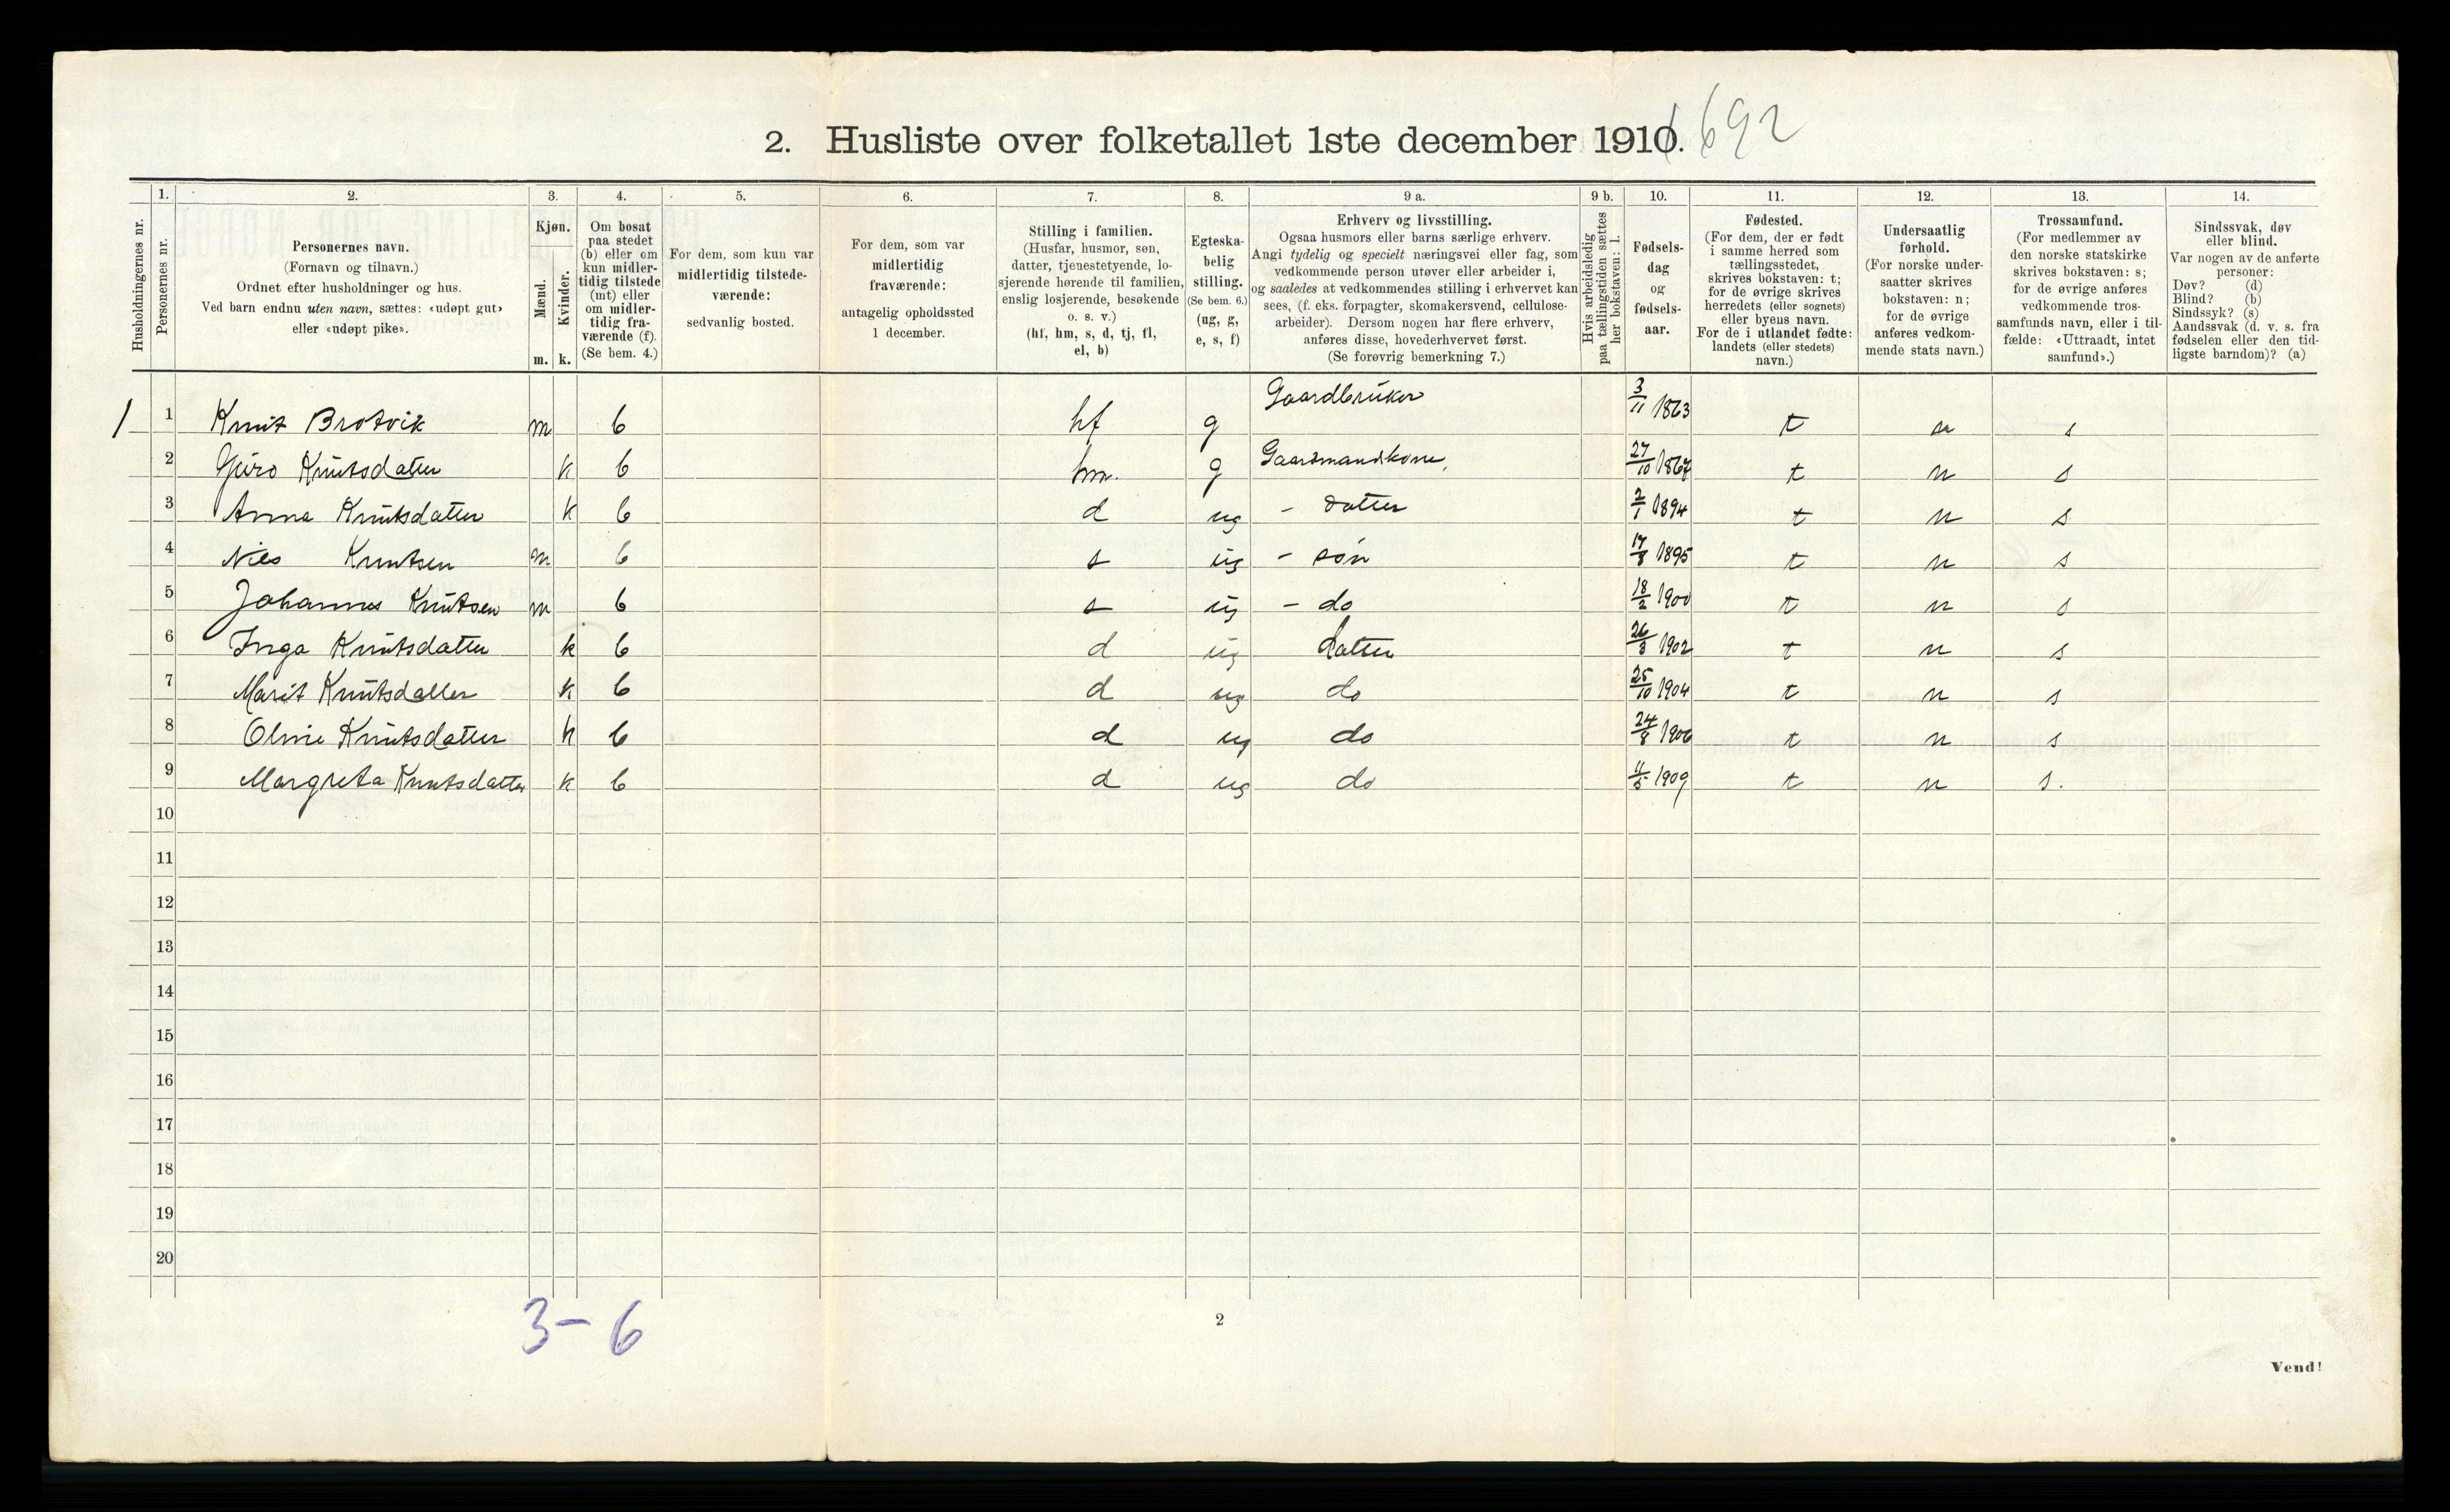 2. Husliste over folketallet 1ste december 1910. 692
1. 2. 3. 4. 5. 6. 7. 8. 9 a. 9 b. 10. 11. 12. 13. 14.
Husholdningernes nr.
Personernes nr.
Personernes navn.
(Fornavn og tilnavn.)
Ordnet efter husholdninger og hus.
Ved barn endnu uten navn, sættes: «udøpt gut»
eller «udøpt pike».
Kjøn.
Mænd.
Kvinder.
m. k.
Om bosat
paa stedet
(b) eller om
kun midler-
tidig tilstede
(mt) eller
om midler-
tidig fra-
værende (f).
(Se bem. 4.)
For dem, som kun var
midlertidig tilstede-
værende:
sedvanlig bosted.
For dem, som var
midlertidig
fraværende:
antagelig opholdssted
1 december.
Stilling i familien.
(Husfar, husmor, søn,
datter, tjenestetyende, lo-
sjerende hørende til familien,
enslig losjerende, besøkende
o. s. v.)
(hf, hm, s, d, tj, fl,
el, b)
Egteska-
belig
stilling.
(Se bem. 6.)
(ug, g,
e, s, f)
Erhverv og livsstilling.
Ogsaa husmors eller barns særlige erhverv.
Angi tydelig og specielt næringsvei eller fag, som
vedkommende person utøver eller arbeider i,
og saaledes at vedkommendes stilling i erhvervet kan
sees, (f. eks. forpagter, skomakersvend, cellulose-
arbeider). Dersom nogen har flere erhverv,
anføres disse, hovederhvervet først.
(Se forøvrig bemerkning 7.)
Hvis arbeidsledig
paa tællingstiden sættes
her bokstaven: l.
Fødsels-
dag
og
fødsels-
aar.
Fødested.
(For dem, der er født
i samme herred som
tællingsstedet,
skrives bokstaven: t;
for de øvrige skrives
herredets (eller sognets)
eller byeus navn.
For de i utlandet fødte:
landets (eller stedets)
navn.)
Undersaatlig
forhold.
(For norske under-
saatter skrives
bokstaven: n;
for de øvrige
anføres vedkom-
mende stats navn.)
Trossamfund.
(For medlemmer av
den norske statskirke
skrives bokstaven: s;
for de øvrige anføres
vedkommende tros-
samfunds navn, eller i til-
fælde: «Uttraadt, intet
samfund».)
Sindssvak, døv
eller blind.
Var nogen av de anførte
personer:
Døv? (d)
Blind? (b)
Sindssyk? (s)
Aandssvak (d. v. s. fra
fødselen eller den tid-
ligste barndom)? (a)
1 1 Knut Brotvik m b hf g Gaardbruker 3/11 1863 t n s
2 Guro Knutsdatter k b hm. g Gaardmandskone, 27/10 1867 t n s
3 Anna Knutsdatter k b d ug - datter 2/1 1894 t n s
4 Nils Knutsen m b s ug - søn 17/8 1895 t n s
5 Johannes Knutsen m b s ug - do 18/2 1900 t n s
6 Inga Knutsdatter k b d ug datter 26/3 1902 t n s
7 Marit Knutsdatter k b d ug do 25/10 1904 t n s
8 Oline Knutsdatter k b d ug do 24/8 1906 t n s
9 Margreta Knutsdatter k b d ug do 11/5 1909 t n s.
10
11
12
13
14
15
16
17
18
19
20
3-6
2
Vend!